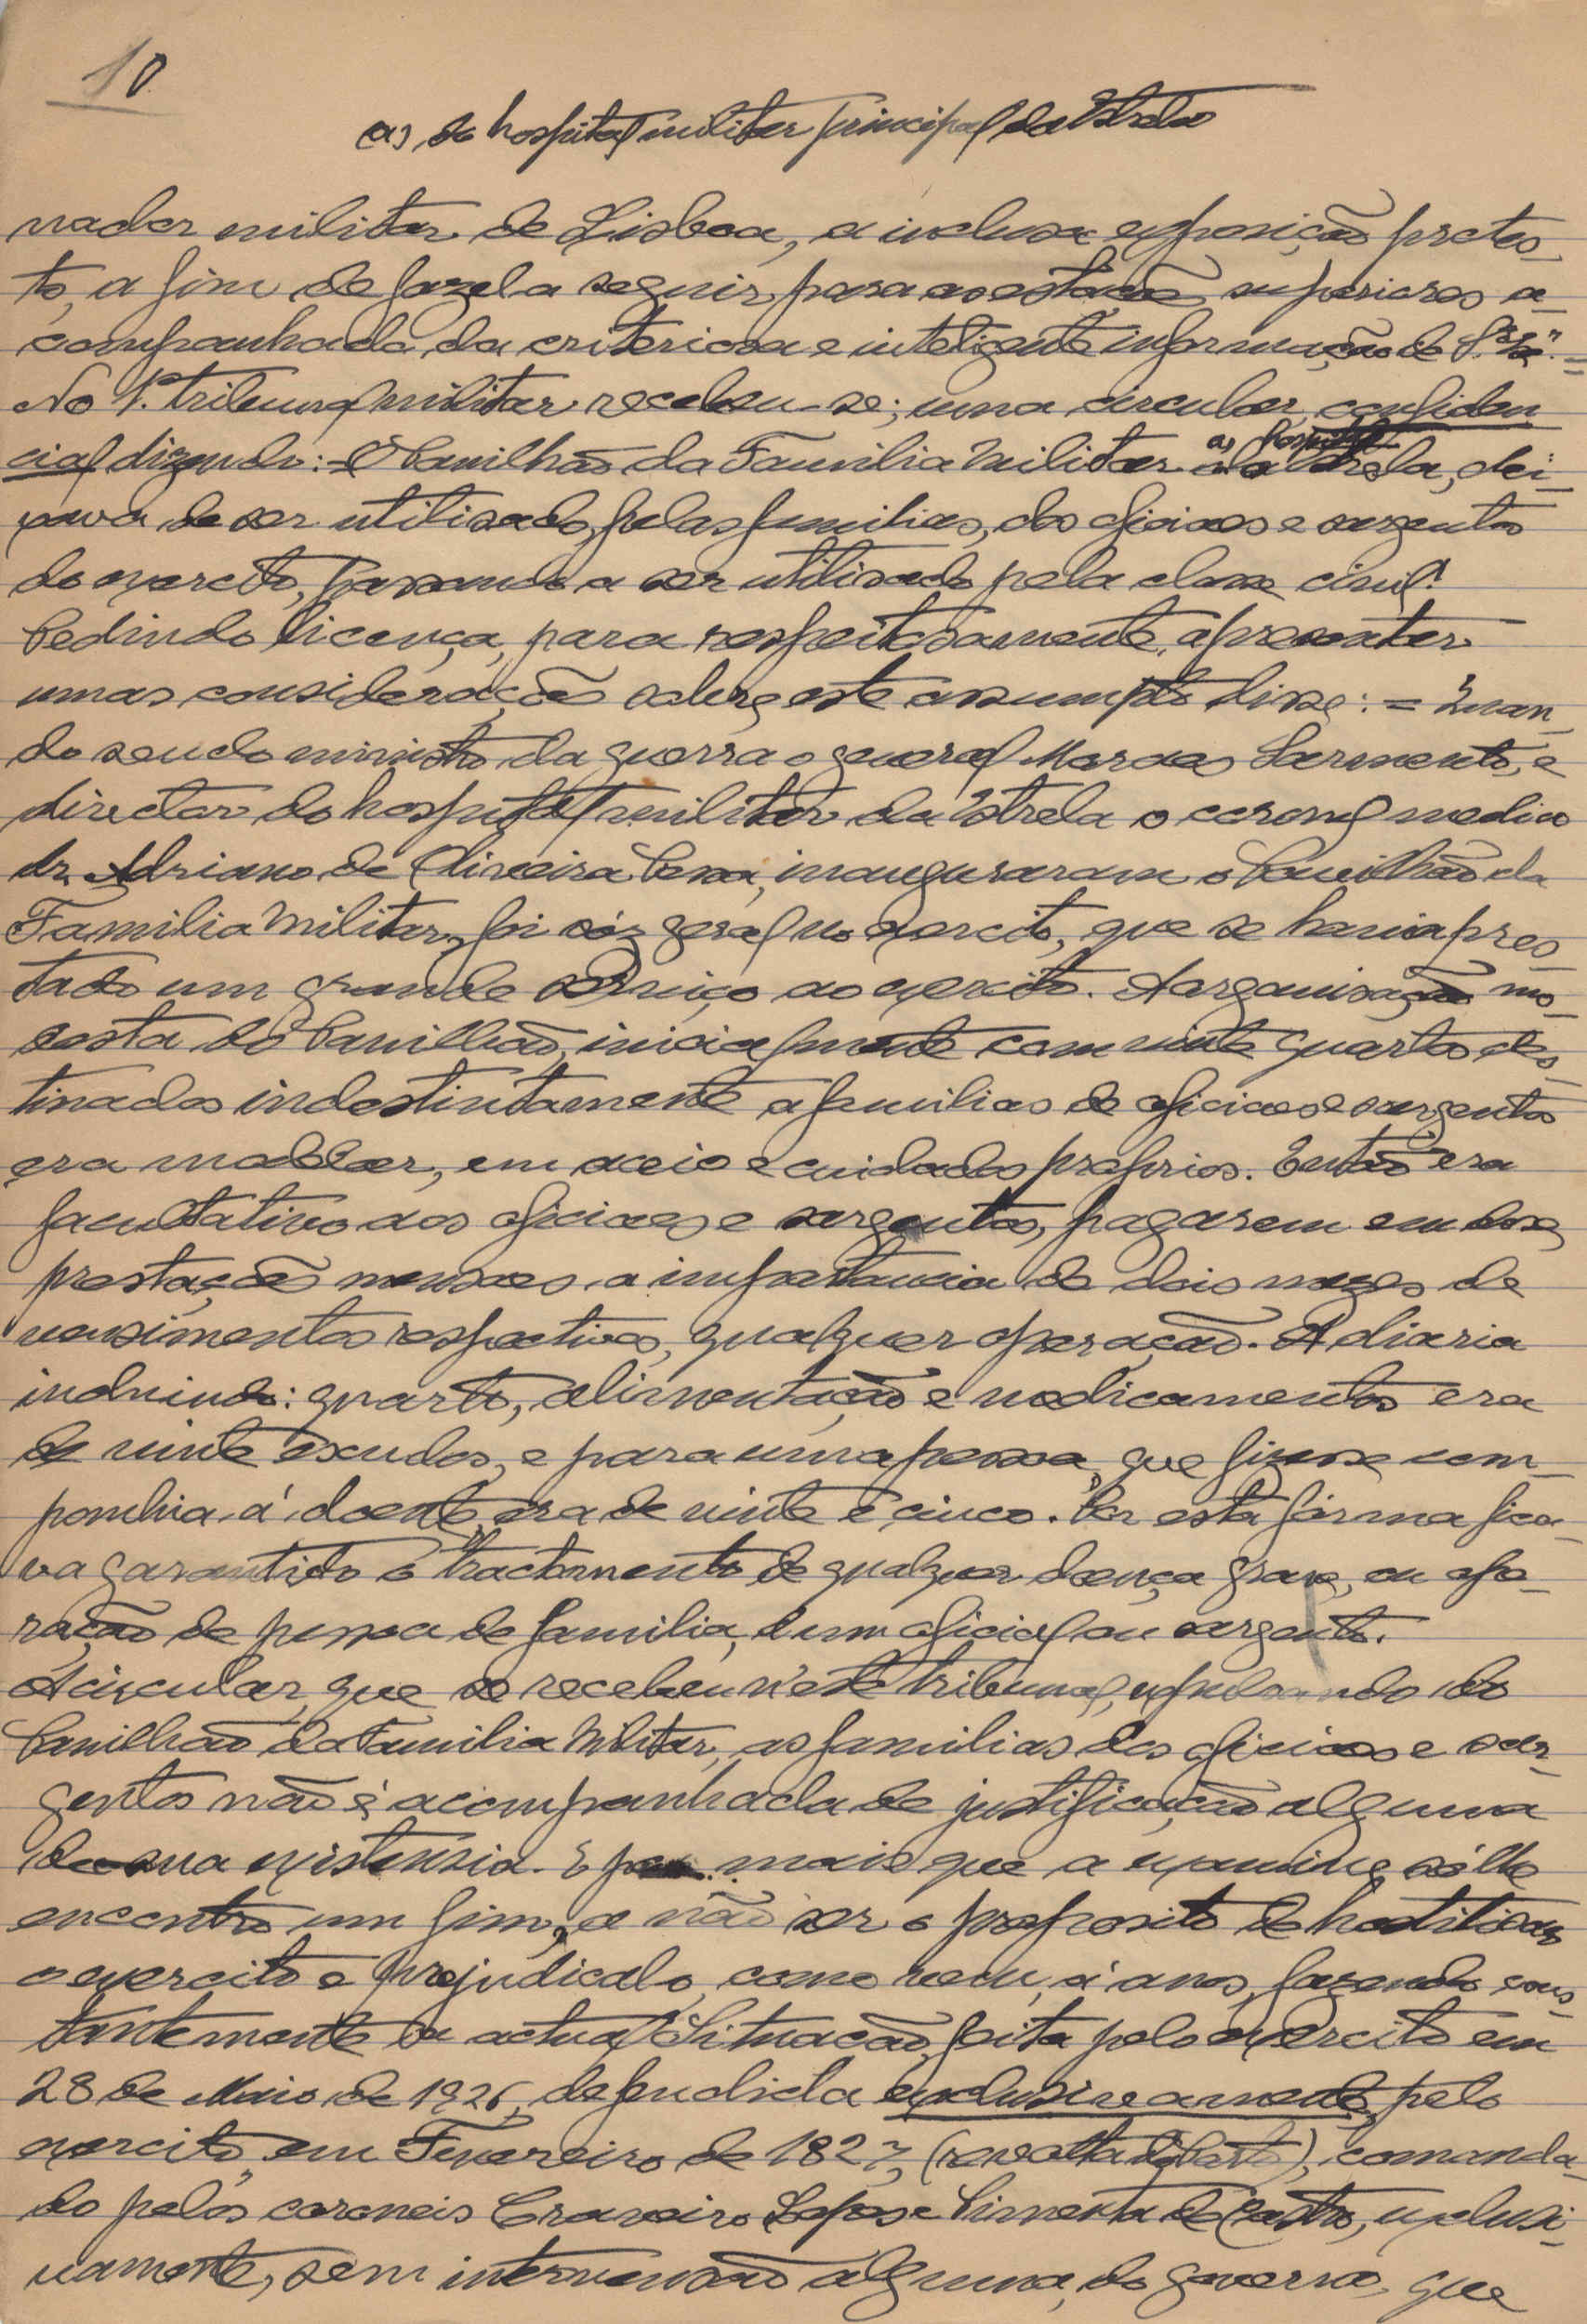 10
a) do hospital militar principal da Estrela
nador militar de Lisboa, a inclusa exposição protes-
to, a fim de fazel-a seguir para as estações superiores a-
companhada da criteriosa e inteligente informação de S. Exª". =
No 1º. tribunal militar recebeu-se; uma circular, confiden
cial dizendo: = O Pavilhão da Familia Militar a) da Estrela, dei-
xava de ser utilisado, pelas familias, dos oficiaes e sargentos
do exercito, passando a ser utilisado pela classe civil!
Pedindo licença, para respeitosamente, apresentar
umas considerações sobre este assumpto disse: = Quan-
do sendo ministro da guerra o general Moraes Sarmento, e
director do hospital militar da Estrela o coronel medico
dr. Adriano de Oliveira Pessa, inauguraram o Pavilhão da
Familia Militar, foi vóz geral no exercito, que se havia pres-
tado um grande serviço ao exercito. A organisação mo-
desta do Pavilhão, inicialmente com vinte quartos des-
tinados indestintamente a familias de oficiaes e sargentos
era modelar, em aceio e cuidados proprios. Então era
facultativo aos oficiaes e sargentos, pagarem em doze
prestações mensaes, a importancia de dois mezes de
vensimentos respectivos, qualquer operação. A diaria
incluindo: quarto, alimentação e medicamentos era
de vinte escudos, e para uma pessoa, que fizesse com-
panhia, á doente, era de vinte e cinco. Por esta fórma fica-
va garantido o tractamento de qualquer doença grave, ou ope-
ração de pessoa de familia, d'um oficial ou sargento.
A circular, que se recebeu n'este tribunal, expulsando do
Pavilhão da Familia Militar, as familias dos oficiaes e sar-
gentos não é acompanhada de justificação alguma
da sua existensia. E por mais que a examine só lhe
encontro um fim, a não ser o proposito de hostilisar
o exercito e prejudical-o, como vem, á anos, fazendo cons-
tantemente a actual Situação, feita pelo exercito em
28 de Maio de 1926, defendida exclusivamente, pelo
exercito, em Fevereiro de 1827, (revolta do Porto), comanda-
do pelos coroneis Craveiro Lopes e Pimenta de Castro, exclusi-
vamente, sem intervensão alguma, do governo, que